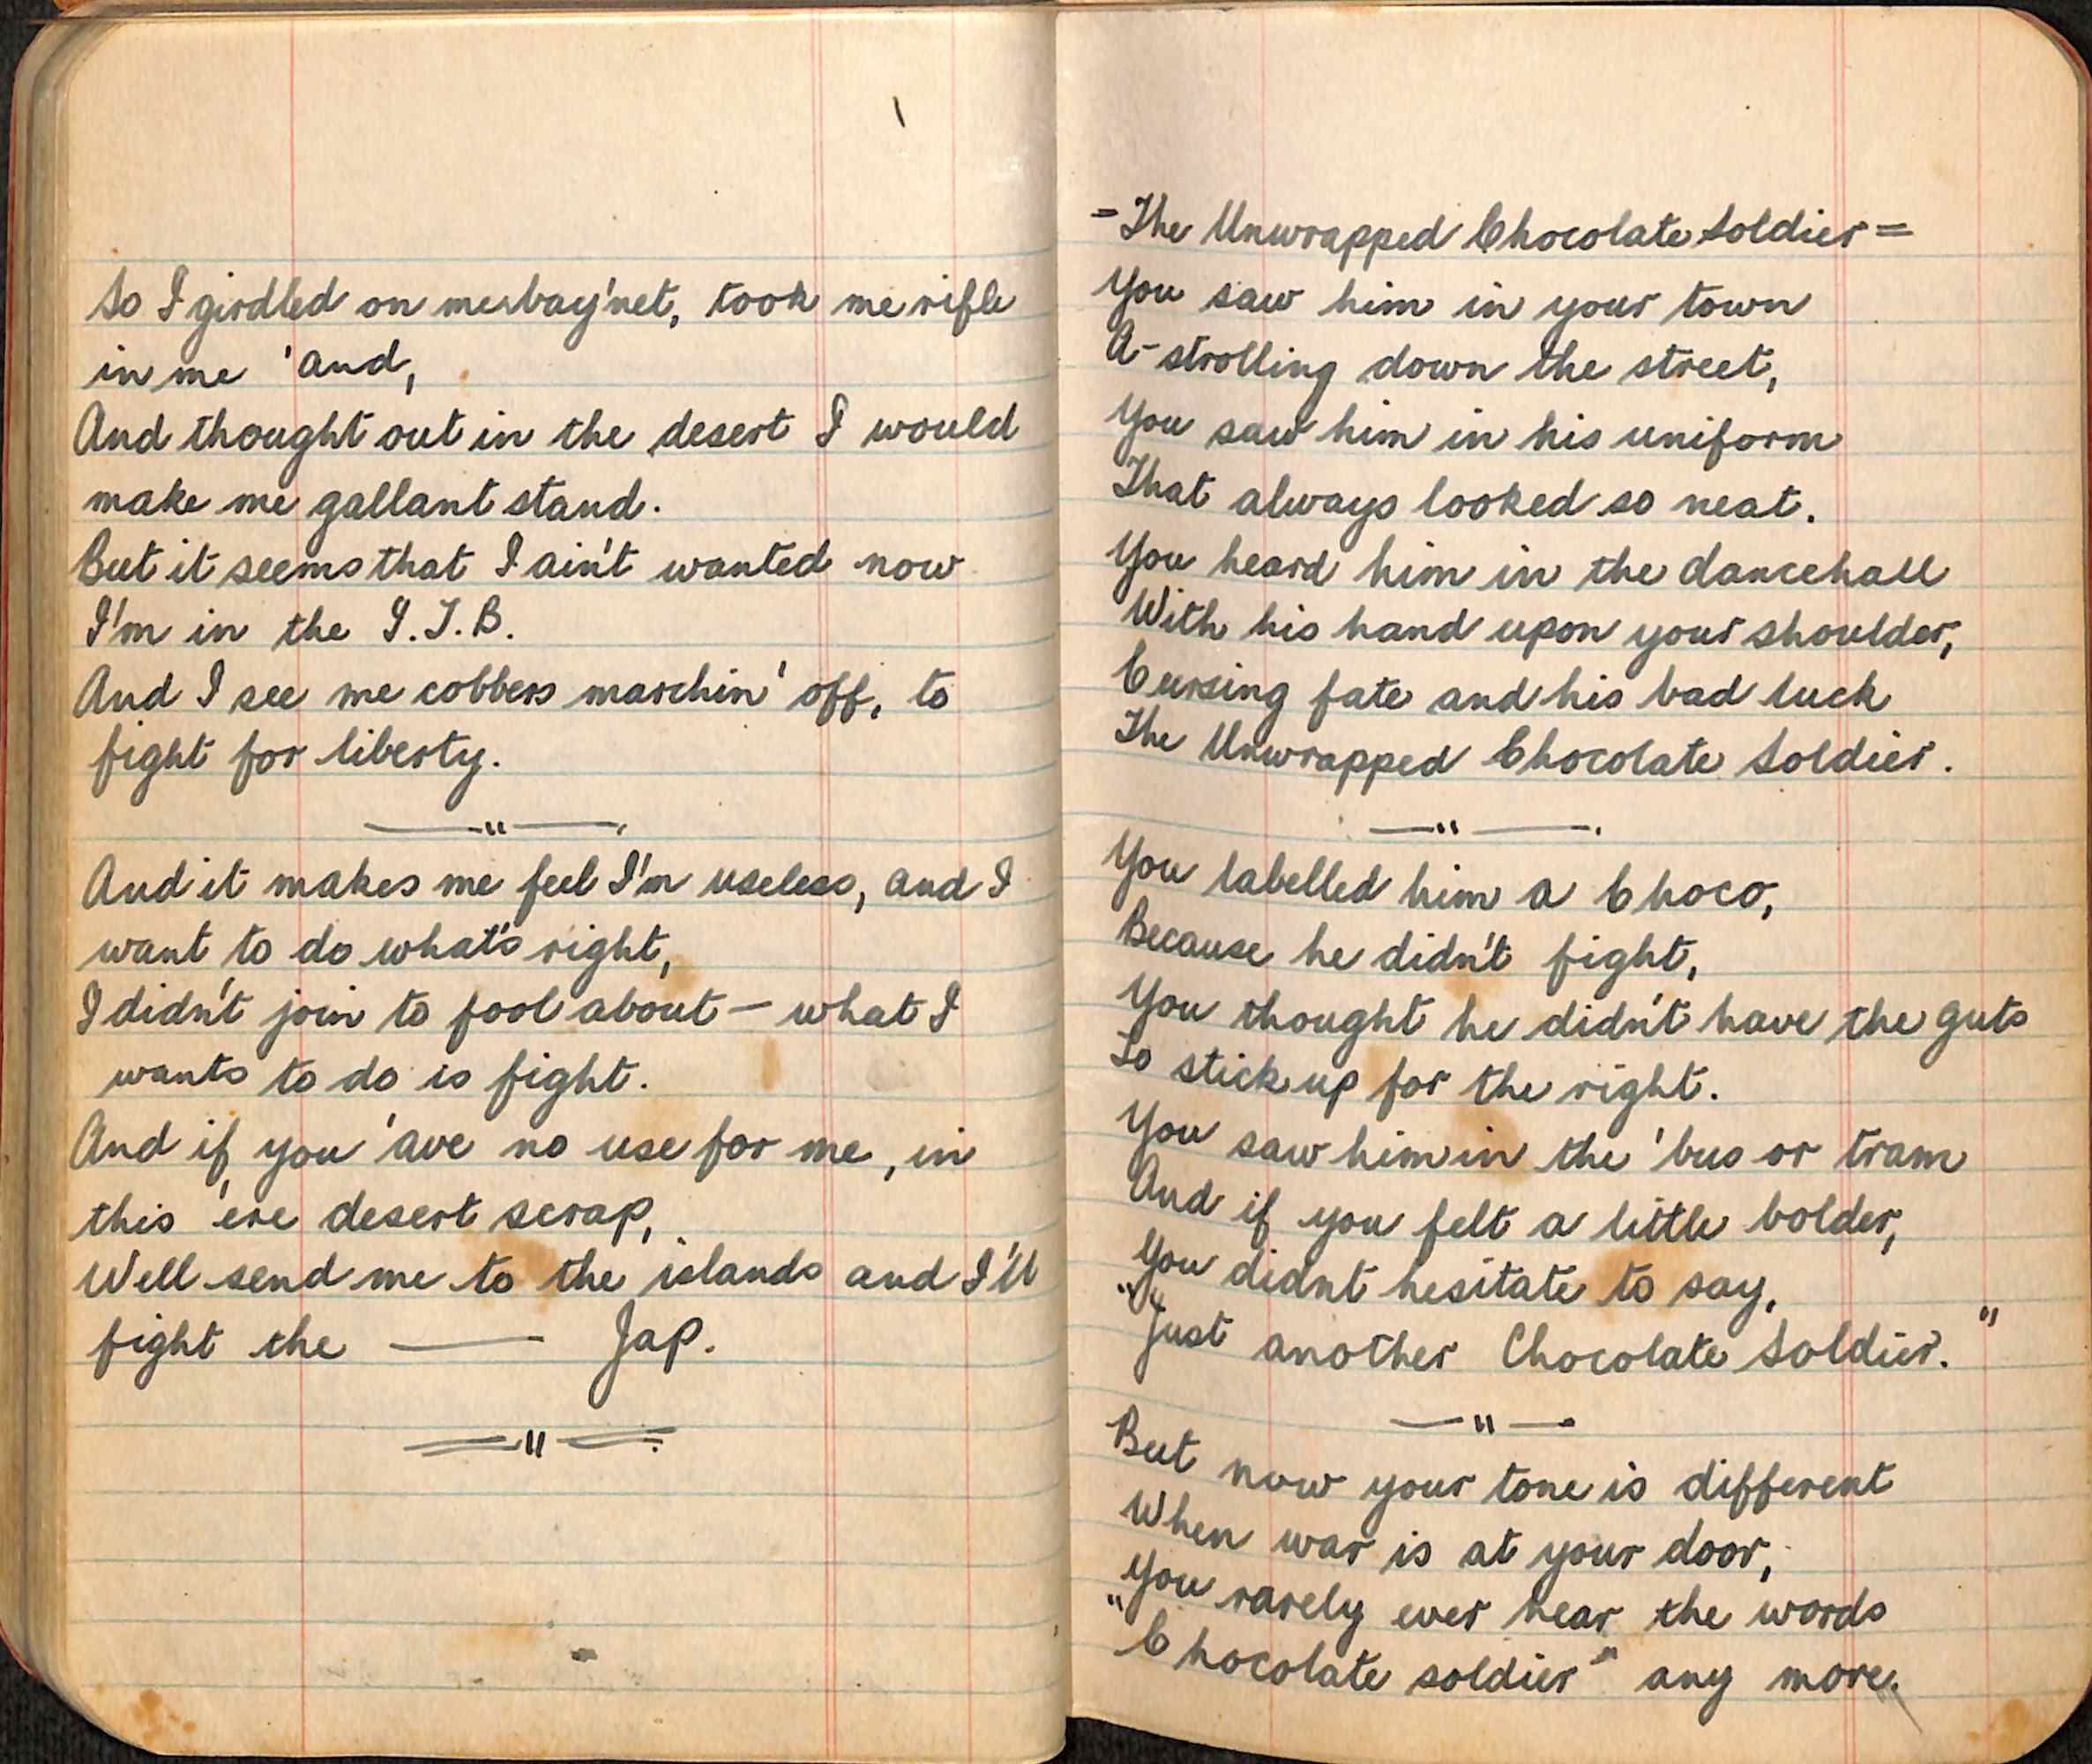 So I girdled on me bay'net, took me rifle
in me 'and,
And thought out in the desert I would
make me gallant stand.
But it seems that I ain't wanted now
I'm in the I.T.B.
And I see me cobbers marchin' off, to
fight for liberty.
—"—
And it makes me feel I'm useless, and I
want to do what's right,
I didn't join to fool about — what I
wants to do is fight.
And if you 'ave no use for me, in
this 'ere desert scrap,
Well send me to the islands and I'll
fight the —— Jap.
="=
=The Unwrapped Chocolate Soldier=
You saw him in your town
A-strolling down the street,
You saw him in his uniform
That always looked so neat.
You heard him in the dancehall
With his hand upon your shoulder,
Cursing fate and his bad luck
The Unwrapped Chocolate Soldier.
—"—
You labelled him a Choco,
Because he didn't fight,
You thought he didn't have the guts
To stick up for the right.
You saw him in the 'bus or tram
And if you felt a little bolder,
You didnt hesitate to say,
"Just another Chocolate Soldier."
—"—
But now your tone is different
When war is at your door,
You rarely ever hear the words
"Chocolate soldier" any more.